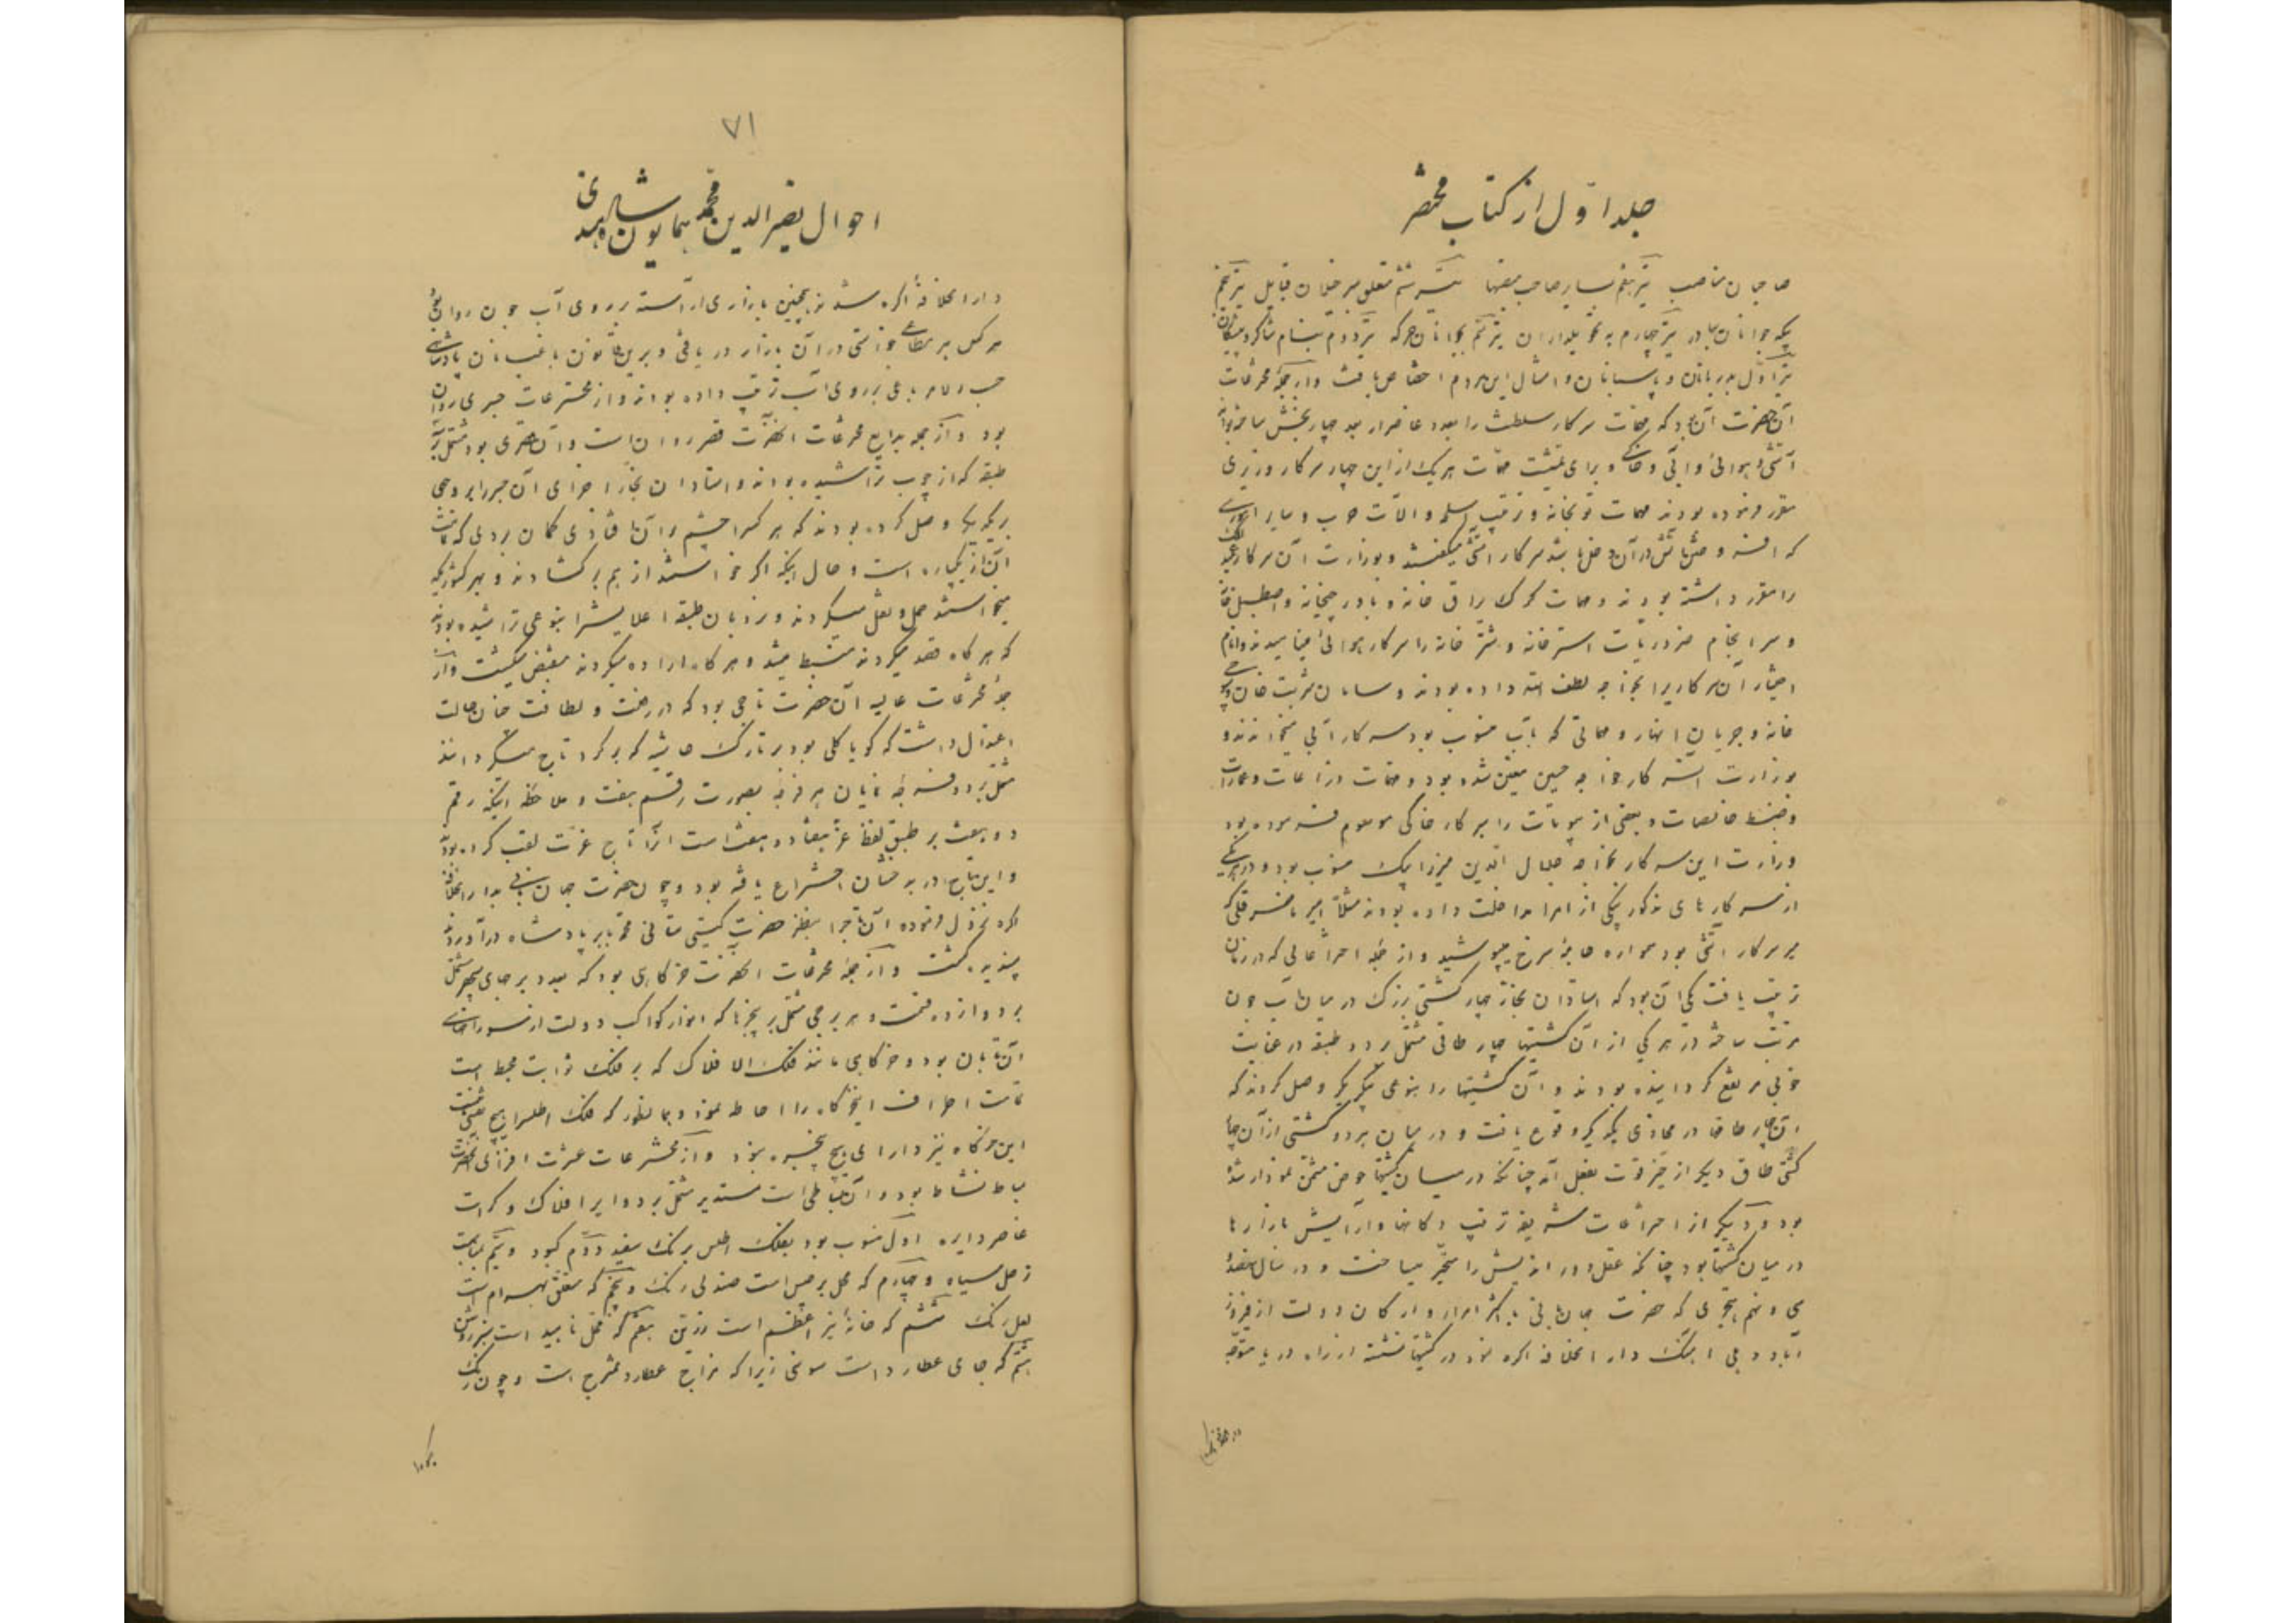 جلد اول از کتاب مختصر
صاحبان مناصب تیر هفتم سایر صاحب منصبها تیر ششم متعلق سرخیلان قبایل تیر پنجم
یکه جوانان بهادر تیر چهارم به تحویلداران تیر سیم بجوانان جرکه تیر دوم بنام شاگرد پیشگان
تیر اول بدربانان و پاسبانان و امثال این مردم اختصاص یافت و از جمله مخترعات
آن حضرت آن بود که مهمات سرکار سلطنت را بعدد عناصر اربعه چهار بخش ساخته بود
آتشی و هوائی و آبی و خاکی و برای تمشیت مهمات هر یک از این چهار سرکار وزیری
مقرر فرموده بودند مهمات توپخانه و ترتیب اسلحه و آلات حرب و سایر اموری
که افروختن آتش در آن دخل باشد سرکار آتشی میگفتند و بوزارت آن سرکار
را مقرر داشته بودند و مهمات کرک یراق خانه و باورچیخانه و اصطبل خانه
و سرانجام ضروریات استرخانه و شترخانه را سرکار هوائی مینامیدند و زمام
اختیار آن سرکار را بخواجه لطف الله داده بودند و سامان شربت خانه و
خانه و جریان انهار و مهماتی که بآب منسوب بود سرکار آبی میخواندند و
بوزارت آن سرکار خواجه حسین معین شده بود و مهمات زراعات و عمارات
و ضبط خالصات و بعضی از بیوتات را سرکار خاکی موسوم فرموده بود
وزارت این سرکار بخواجه جلال الدین میرزا بیک منسوب بود و در هر یکی
از سرکارهای مذکور یکی از امرا مداخلت داده بودند مثلا امیر ناصر قلی که
میر سرکار آتشی بود همواره جامه سرخ میپوشید و از جمله اختراعاتی که در زمان
ترتیب یافت یکی آن بود که استادان نجار چهار کشتی بزرگ در میان آب جون
مرتب ساخته در هر یکی از آن کشتیها چهار طاقی مشتمل بر دو طبقه در غایت
خوبی مرتفع گردانیده بودند و آن کشتیها را بنوعی بیکدیگر وصل کردند که
آن چهار طاقها در محاذی یکدیگر وقوع یافت و در میان هر دو کشتی از آن چهار
کشتی طاق دیگر از حیز قوت بفعل آمد چنانکه در میان کشتیها حوض مثمن نمودار شده
بود و دیگر از اختراعات شریفه ترتیب دکانها و آرایش بازارها
در میان کشتیها بود چنانکه عقل دور اندیش را متحیر میساخت و در سال نهصد و
سی و نهم هجری که حضرت جهانبانی با اکثر امرا و ارکان دولت از فیروز
آباد دهلی آهنگ دار الخلافه اکره نمود در کشتیها نشسته از راه دریا متوجه
دار الخلافه
۷۱
احوال نصیر الدین محمد همایون شاه هندی
دار الخلافه اکره شدند همچنین بازاری آراسته بر روی آب جون روان شد
هر کس هر متاعی خواستی در آن بازار دریافتی و برین قانون باغبانان پادشاهی
حسب الامر باغی بر روی آب ترتیب داده بودند و از مخترعات جسری روان
بود و از جمله بدایع مخترعات آنحضرت قصر روان است و آن قصری بود مشتمل بر سه
طبقه که از چوب تراشیده بودند و استادان نجار اجزای آن قصر را بر وجهی
بیکدیگر وصل کرده بودند که هر که را چشم بر آن افتادی گمان بردی که تمامت
آن از یکپاره است و حال اینکه اگر خواستند از هم بر گشادند و بهر کشوریکه
میخواستند حمل و نقل میکردند و نردبان طبقه اعلایش را بنوعی تراشیده بودند
که هر گاه قصد میکردند منبسط میشد و هر گاه اراده میکردند منقبض میگشت و از
جمله مخترعات عالیه آن حضرت تاجی بود که در رفعت و لطافت چنان حالت
اعتدال داشت که گویا گلی بود بر تارک حاشیه که بر گرد تاج میگردانند
مشتمل بر دو فرجه نمایان هر فرجه بصورت رقم هفت و ملاحظه اینکه رقم
دو هفت بر طبق لفظ عز هفتاد و هفت است آنرا تاج عزت لقب کرده بودند
و این تاج در بدخشان اختراع یافته بود و چون حضرت جهانبانی بدار الخلافه
اکره نزول فرموده آن تاج را بنظر حضرت گیتی ستانی محمد بابر پادشاه درآوردند
پسندیده گشت و از جمله مخترعات آنحضرت خرگاهی بود که بعدد برجهای سپهر مشتمل
بر دوازده قسمت و هر برجی مشتمل بر پنجرها که انوار کواکب دولت از سوراخهای
آن تابان بود و خرگاهی مانند فلک الافلاک که بر فلک ثوابت محیط است
تمامت اطراف این خرگاه را احاطه نمود و همانطور که فلک اطلس از هیچ نقش
این خرگاه نیز دارای هیچ پنجره نبود و از مخترعات عشرت افزای آنحضرت
بساط نشاط بود و آن بساطی است مستدیر مشتمل بر دوایر افلاک و کرات
عناصر دایره اول منسوب بود بفلک اطلس برنگ سفید دوم کبود و سیم بمناسبت
زحل سیاه و چهارم که محل برجیس است صندلی رنگ و پنجم که متعلق بهرام است
لعل رنگ ششم که خانه نیر اعظم است زرین هفتم که محل ناهید است سبز روشن
هشتم که جای عطارد است سوسنی زیرا که مزاج عطارد ممتزج است و چون رنگ